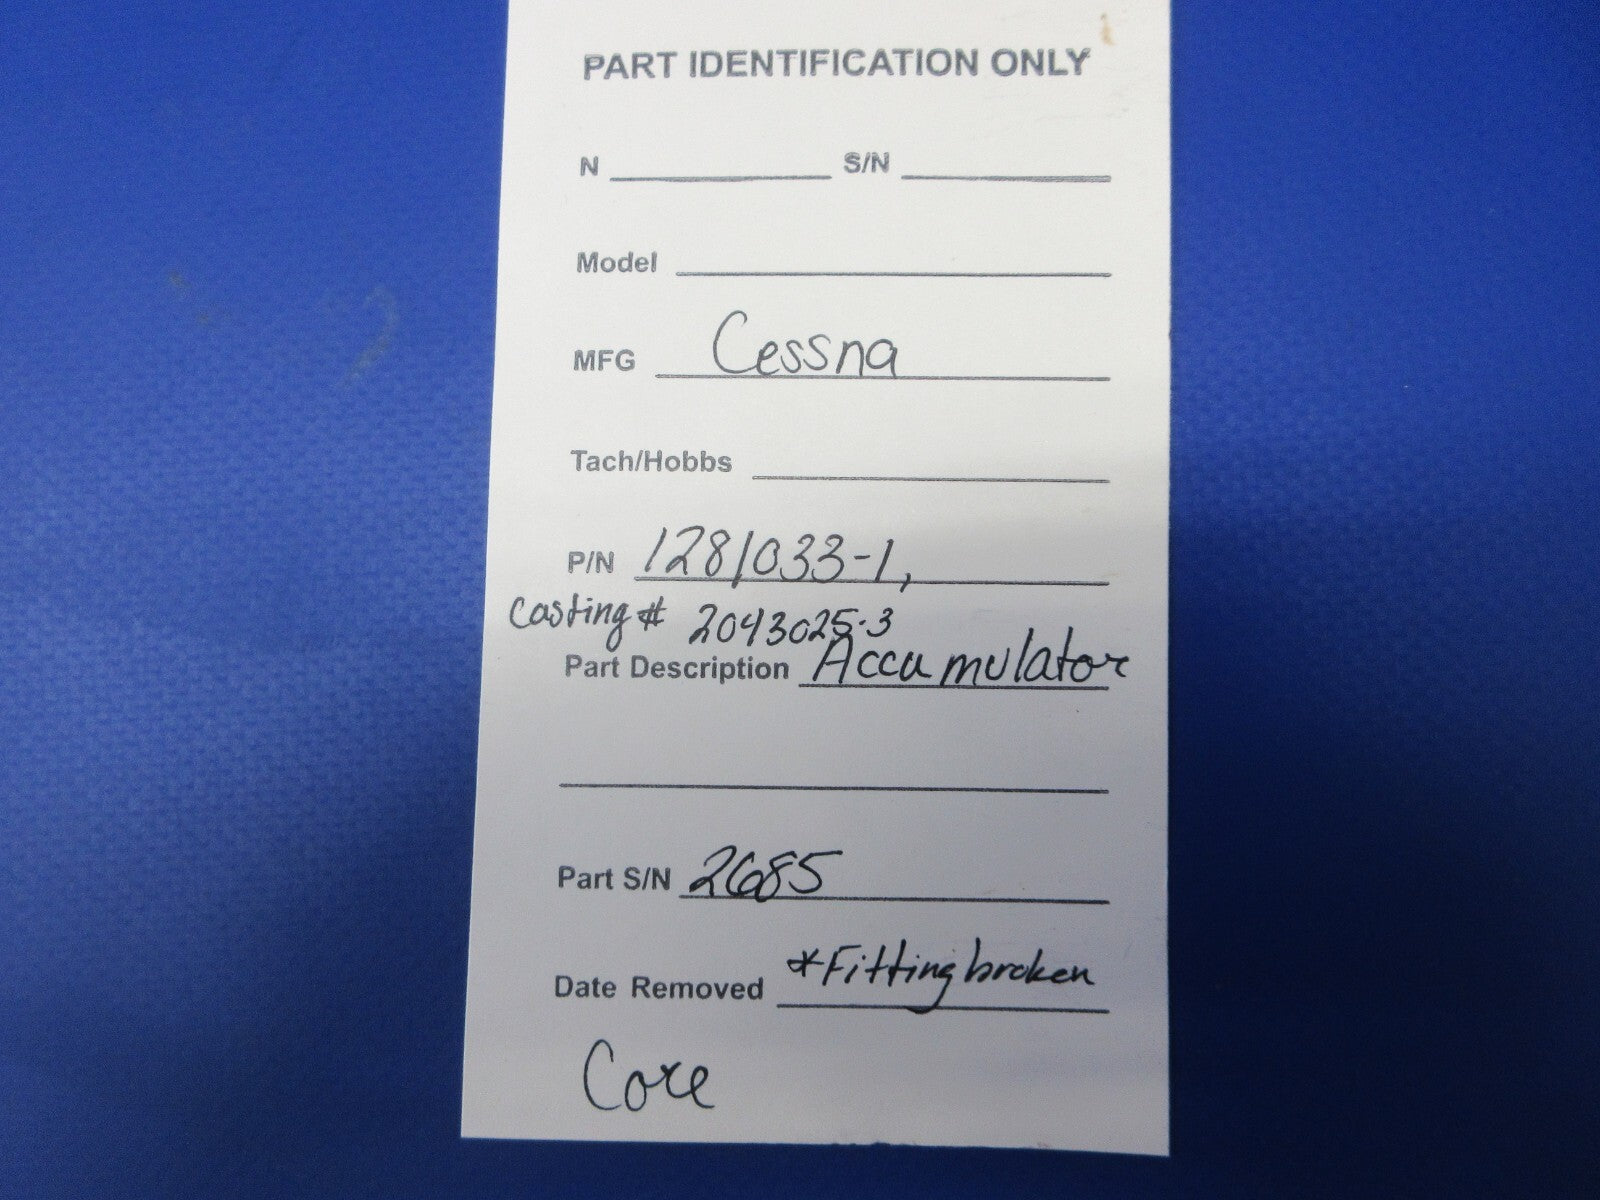 PART IDENTIFICATION ONLY
N S/N
Model
MFG Cessna
Tach/Hobbs
P/N 1281033-1,
Casting # 2043025-3
Part Description Accumulator
Part S/N 2685
Date Removed *Fitting broken
Core